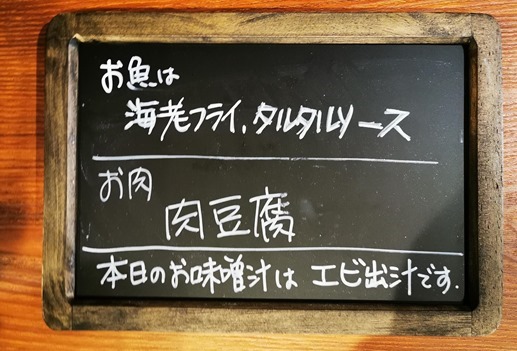 お魚は
海老フライ,タルタルソース
お肉
肉豆腐
本日のお味噌汁は エビ出汁です.